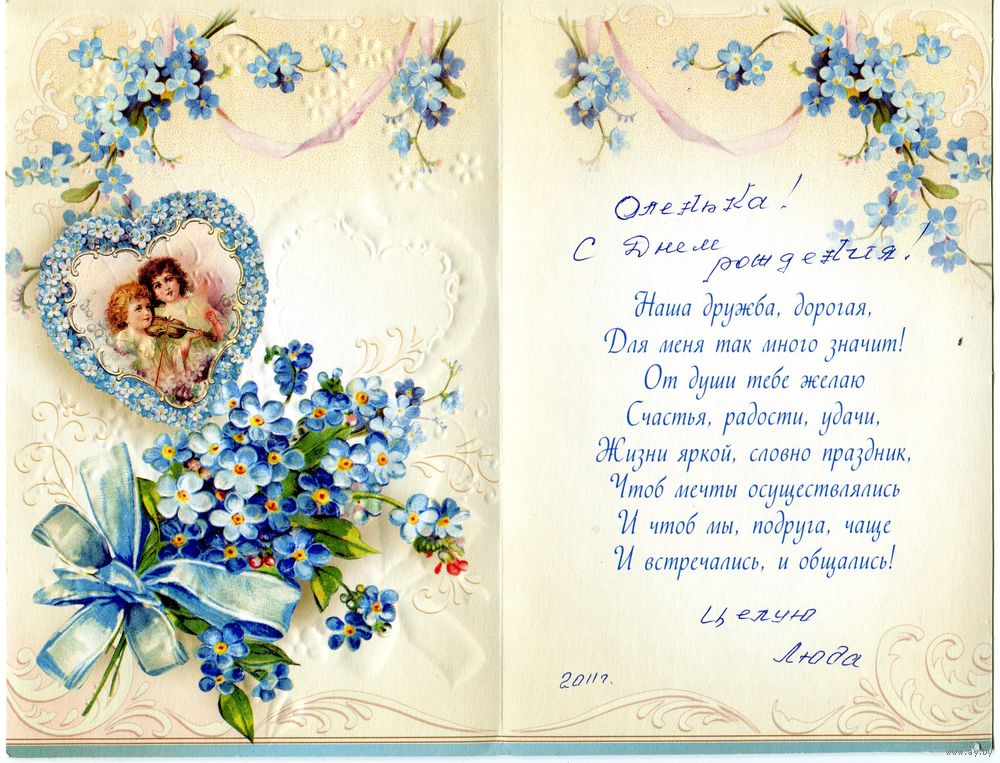 Оленька!
С Днем
рождения!
Наша дружба, дорогая,
Для меня так много значит!
От души тебе желаю
Счастья, радости, удачи,
Жизни яркой, словно праздник,
Чтоб мечты осуществлялись
И чтоб мы, подруга, чаще
И встречались, и общались!
Целую
Люда
2011г.
www.ay.by